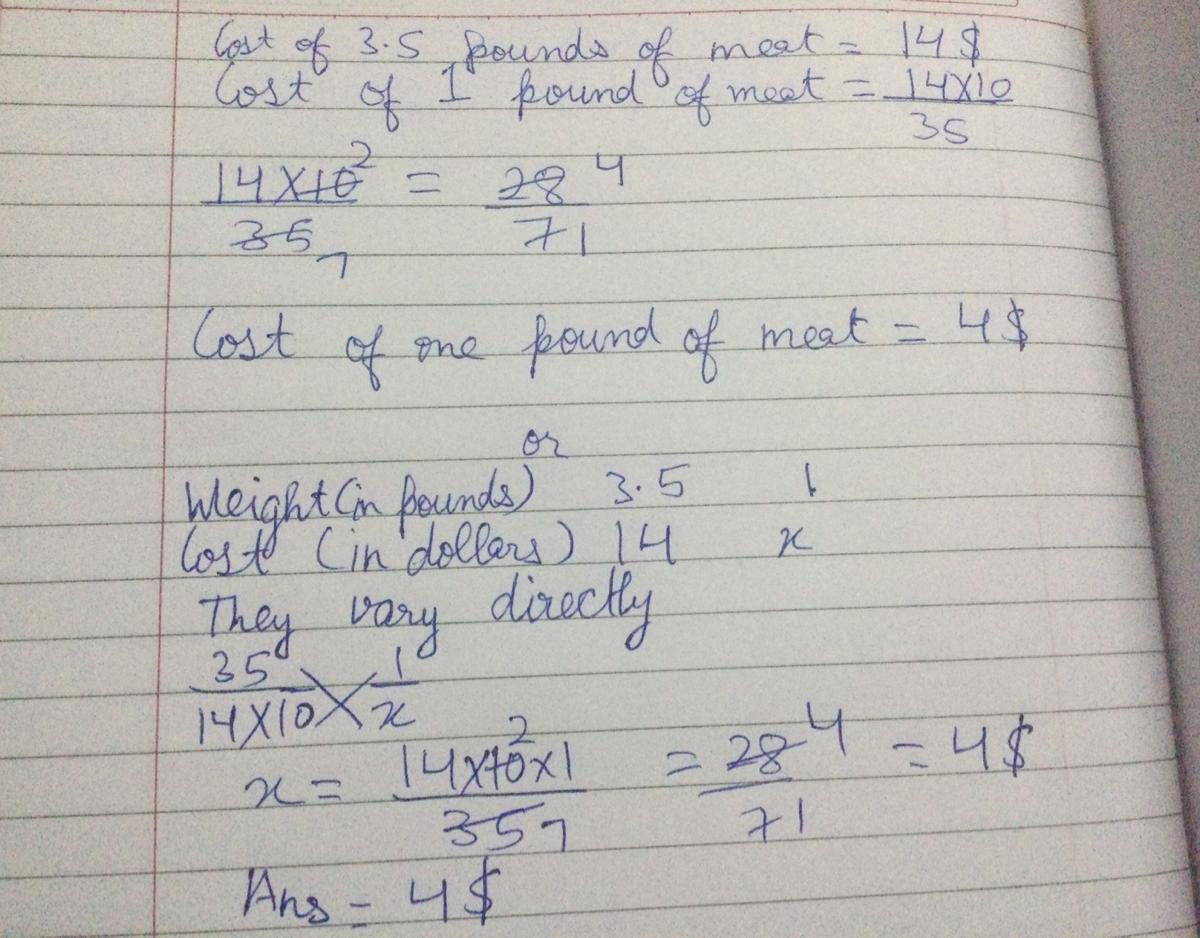 Cost of 3.5 pounds of meat = 14$
Cost of 1 pound of meat = 14X10
35
14X10 2 = 28 4
35 7 71
Cost of one pound of meat = 4$
or
Weight (in pounds) 3.5 1
Cost (in dollars) 14 x
They vary directly
35 1
14X10 x
x = 14x10x1 2 = 28 4 = 4$
35 7 71
Ans - 4$